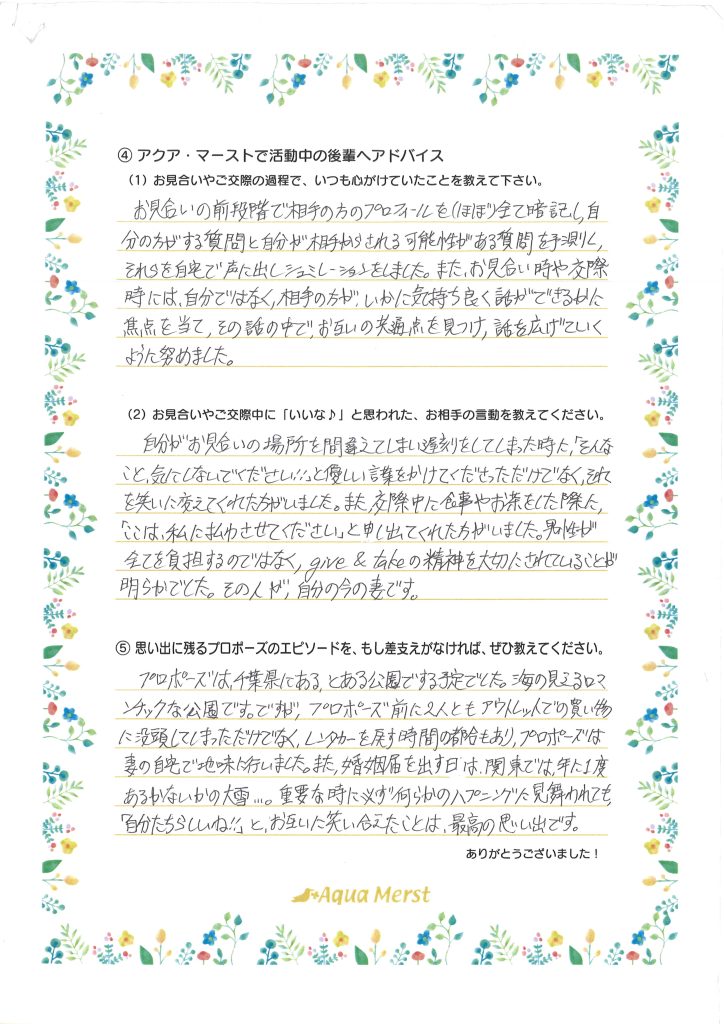 ④ アクア・マーストで活動中の後輩へアドバイス
（1）お見合いやご交際の過程で、いつも心がけていたことを教えて下さい。
お見合いの前段階で相手の方のプロフィールを(ほぼ)全て暗記し,自
分の方がする質問と自分が相手からされる可能性がある質問を予測し,
それらを自宅で声に出しシュミレーションをしました。また,お見合い時や交際
時には,自分ではなく,相手の方が,いかに気持ち良く話ができるかに
焦点を当て,その話の中で,お互いの共通点を見つけ,話を広げていく
ように努めました。
（2）お見合いやご交際中に「いいな♪」と思われた、お相手の言動を教えてください。
自分がお見合いの場所を間違えてしまい遅刻をしてしまった時に,「そんな
こと,気にしないでください!!」と優しい言葉をかけてくださっただけでなく,それ
を笑いに変えてくれた方がいました。また,交際中に食事やお茶をした際に,
「ここは,私に払わさせてください」と申し出てくれた方がいました。男性が
全てを負担するのではなく,give & takeの精神を大切にされていることが
明らかでした。その人が,自分の今の妻です。
⑤ 思い出に残るプロポーズのエピソードを、もし差支えがなければ、ぜひ教えてください。
プロポーズは,千葉県にある,とある公園でする予定でした。海の見えるロマ
ンチックな公園です。ですが,プロポーズ前に2人ともアウトレットでの買い物
に没頭してしまっただけでなく,レンタカーを戻す時間の都合もあり,プロポーズは
妻の自宅で地味に行いました。また,婚姻届を出す日は,関東では,年に1度
あるかないかの大雪…。重要な時に必ず何らかのハプニングに見舞われても,
「自分たちらしいね!!」と,お互いに笑い合えたことは,最高の思い出です。
ありがとうございました！
Aqua Merst